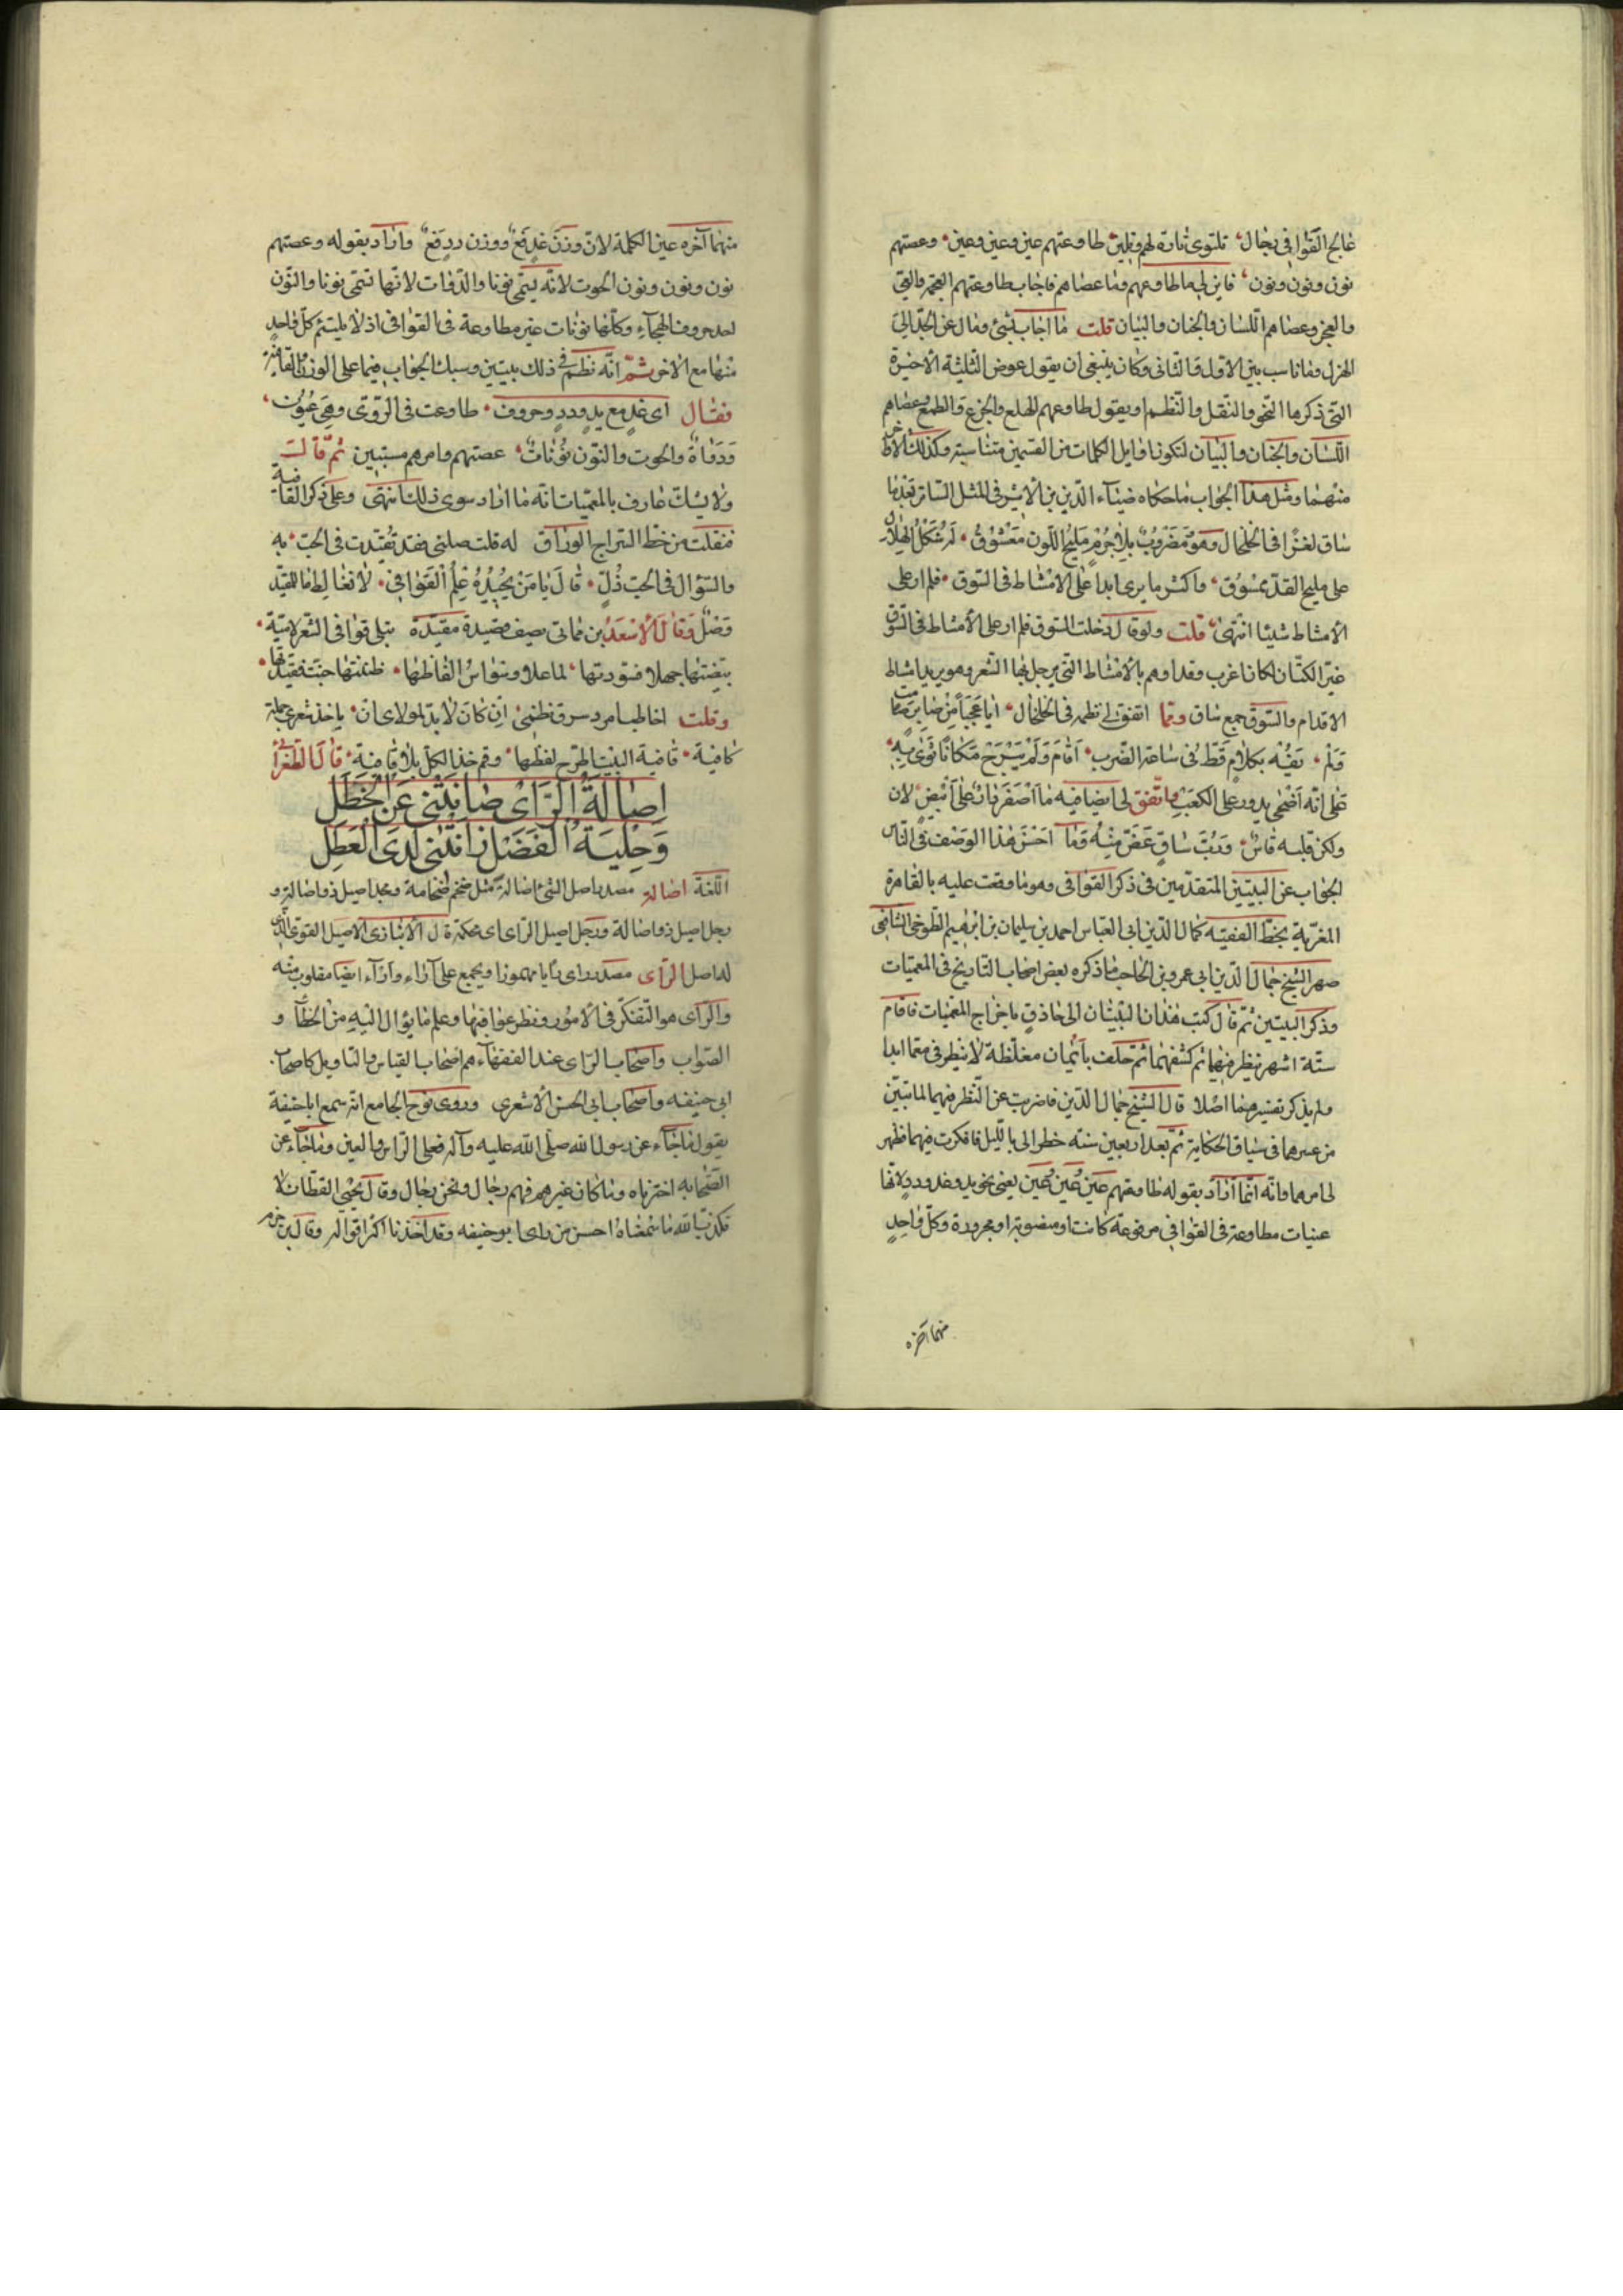 عالج القوافي رجال تلتوي تارة لهم وتلين طاوعتهم عين وعين وعين وعصتهم
نون ونون ونون فابن لي ما طاوعهم وما عصاهم فاجاب طاوعتهم العجمة والعي
والعجز وعصاهم اللسان والجنان والبيان قلت ما اجاب بشيء ومال عن الجد الى
الهزل وما ناسب بين الاول والثاني وكان ينبغي ان يقول عوض الثلثة الاخيرة
التي ذكرها النحو والنقل والنظم او يقول طاوعهم الهلع والجزع والطمع وعصاهم
اللسان والجنان والبيان لتكون اوايل الكلمات من القسمين متناسبة وكذلك الاواخر
منهما ومثل هذا الجواب ما حكاه ضياء الدين بن الاثير في المثل الساير بعد ما
ساق لغزا في الخلخال وهو ومضروب بلا جرم مليح اللون معشوق له شكل الهلال
على مليح القد ممشوق واكثر ما يرى ابدا على الامشاط في السوق فلم ار على
الامشاط شيئا انتهى قلت ولو قال دخلت السوق فلم ار على الامشاط في السوق
غير الكتان لكان اغرب وقد اوهم بالامشاط التي يرجل بها الشعر وهو يريد امشاط
الاقدام والسوق جمع ساق ومما اتفق لي نظمه في الخلخال ايا عجبا من صابر صامت
ولم يفه بكلام قط في ساعة الضرب اقام ولم يبرح مكانا ثوى به
على انه اضحى يدور على الكعب واتفق لي ايضا فيه ما اصفر بات على ابيض لان
ولكن قلبه قاس ورب ساق غض منه وما احسن هذا الوصف في الناس
الجواب عن البيتين المتقدمين في ذكر القوافي وهو ما وقعت عليه بالقاهرة
المغربة بخط الفقيه كمال الدين ابي العباس احمد بن سليمان بن ابرهيم الطوخي الشافعي
صهر الشيخ جمال الدين ابي عمرو بن الحاجب ما ذكره بعض اصحاب التاريخ في المعميات
وذكر البيتين ثم قال كتب هذان البيتان الى حاذق باخراج المعميات فاقام
ستة اشهر ينظر فيهما ثم كشفهما ثم حلف بايمان مغلظة لا ينظر في معما ابدا
ولم يذكر تفسيرهما اصلا قال الشيخ جمال الدين فاضربت عن النظر فيهما لما تبين
من عسرهما في سياق الحكاية ثم بعد اربعين سنة خطر الي بالليل فافكرت فيهما فظهر
لي امرهما وانه انما اراد بقوله طاوعتهم عين وعين وعين يعني نحو يد وغد ودد لانها
عينات مطاوعة في القوافي مرفوعة كانت او منصوبة او مجرورة وكل واحد
منهما آخره
منهما آخره عين الكلمة لان وزن غد فع ووزن دد فع واراد بقوله وعصتهم
نون ونون ونون الحوت لانه يسمى نونا والدواة لانها تسمى نونا والنون
احد حروف الهجاء وكلها نونات غير مطاوعة في القوافي اذ لا يلتئم كل واحد
منها مع الاخر ثم انه نظم في ذلك بيتين وسبك الجواب فيهما على الوزن والقافية
فقال اي غد مع يد ودد وحروف طاوعت في الروي وهي عيون
ودواة والحوت والنون نونات عصتهم وامرهم مستبين ثم قال
ولا يشك عارف بالمعميات انه ما اراد سوى ذلك انتهى وعلى ذكر القافية
فنقلت من خط السراج الوراق له قلت صلني فقد تقيدت في الحب به
والسؤال في الحب ذل قال يا من يجيد علم القوافي لا تغالط ما للمقيد
وصل وقال الاسعد بن مماتي يصف قصيدة مقيدة
بيضتها جهلا فسودتها لما علا وسواس الفاظها ظننتها جنت فقيدتها
وقلت اخاطب من سرق نظمي ان كان لا بد لمولاي ان ياخذ شعري جملة
كافية قافية البيت اطرح لفظها وقم خذ الكل بلا قافية قال الطغرائي
اصالة الراي صانتني عن الخطل
وحلية الفضل زانتني لدى العطل
اللغة اصالة مصدر اصل الشيء اصالة مثل ضخم ضخامة ومجد اصيل ذو اصالة و
رجل اصيل ذو اصالة ورجل اصيل الراي اي محكمه قال الانباري الاصيل القوي الذي
له اصل الراي مصدر راى رايا مهموزا ويجمع على آراء وارآء ايضا مقلوب منه
والراي هو التفكر في الامور ونظر عواقبها وعلم ما يؤال اليه من الخطا و
الصواب واصحاب الراي عند الفقهاء هم اصحاب القياس والتاويل كاصحاب
ابي حنيفه واصحاب ابي الحسن الاشعري وروى نوح الجامع انه سمع ابا حنيفة
يقول ما جاء عن رسول الله صلى الله عليه وآله فعلى الراس والعين وما جاء عن
الصحابه اخترناه وما كان غيرهم فهم رجال ونحن رجال وقال يحيى القطان لا
نكذب الله ما سمعناه احسن من راى ابو حنيفه وقد اخذنا اكثر اقواله وقال ابن حزم